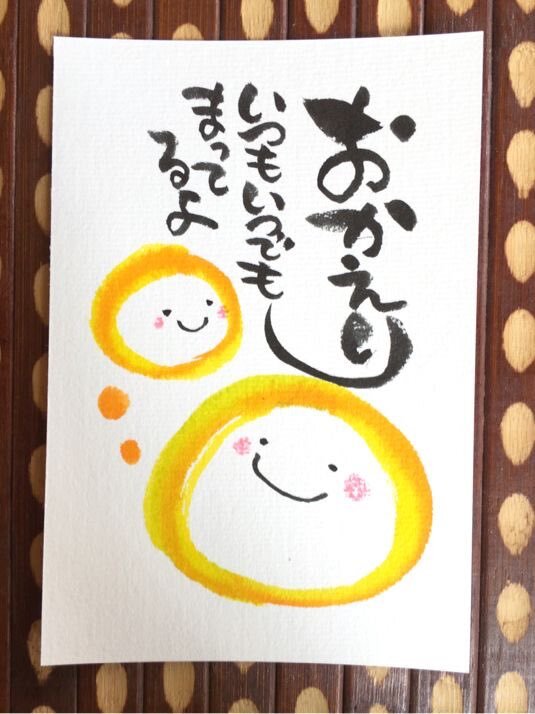 おかえり
いつもいつでも
まって
るよ